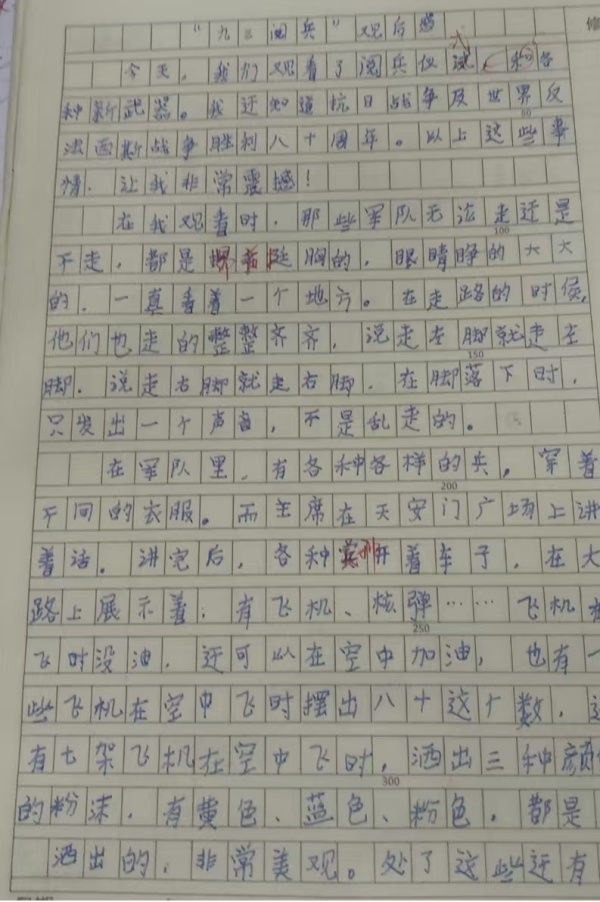 “九三阅兵”观后感
今天，我们观看了阅兵仪式，和各
种新武器。我还知道抗日战争及世界反
50
法西斯战争胜利八十周年。以上这些事
情，让我非常震撼！
在我观看时，那些军队无论走还是
100
不走，都是昂首挺胸的，眼睛睁的大大
的，一直看着一个地方。在走路的时候，
他们也走的整整齐齐，说走左脚就走左
150
脚，说走右脚就走右脚，在脚落下时，
只发出一个声音，不是乱走的。
在军队里，有各种各样的兵，穿着
200
不同的衣服。而主席在天安门广场上讲
着话。讲完后，各种兵开着车子，在大
路上展示着，有飞机、核弹……飞机在
250
飞时没油，还可以在空中加油，也有一
些飞机在空中飞时摆出八十这个数，还
有七架飞机在空中飞时，洒出三种颜
300
的粉沫，有黄色、蓝色、粉色，都是
洒出的，非常美观。处了这些还有